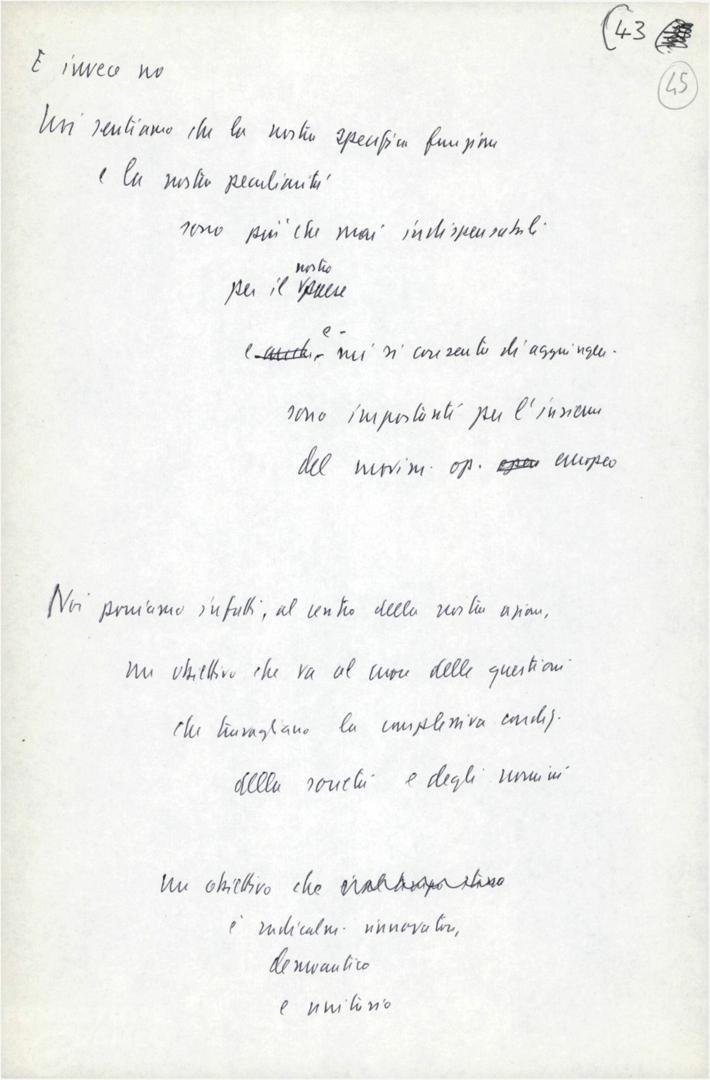 (43
45
E invece no
Noi sentiamo che la nostra specifica funzione
e la nostra peculiarità
sono più che mai indispensabili
nostro
per il paese
e anche e - mi si consenta di aggiungere -
sono importanti per l'insieme
del movim. op. europeo
Noi poniamo infatti, al centro della nostra azione,
un obiettivo che va al cuore delle questioni
che travagliano la complessiva condiz.
della società e degli uomini
Un obiettivo che
è radicalm. innovatore,
democratico
e unitario